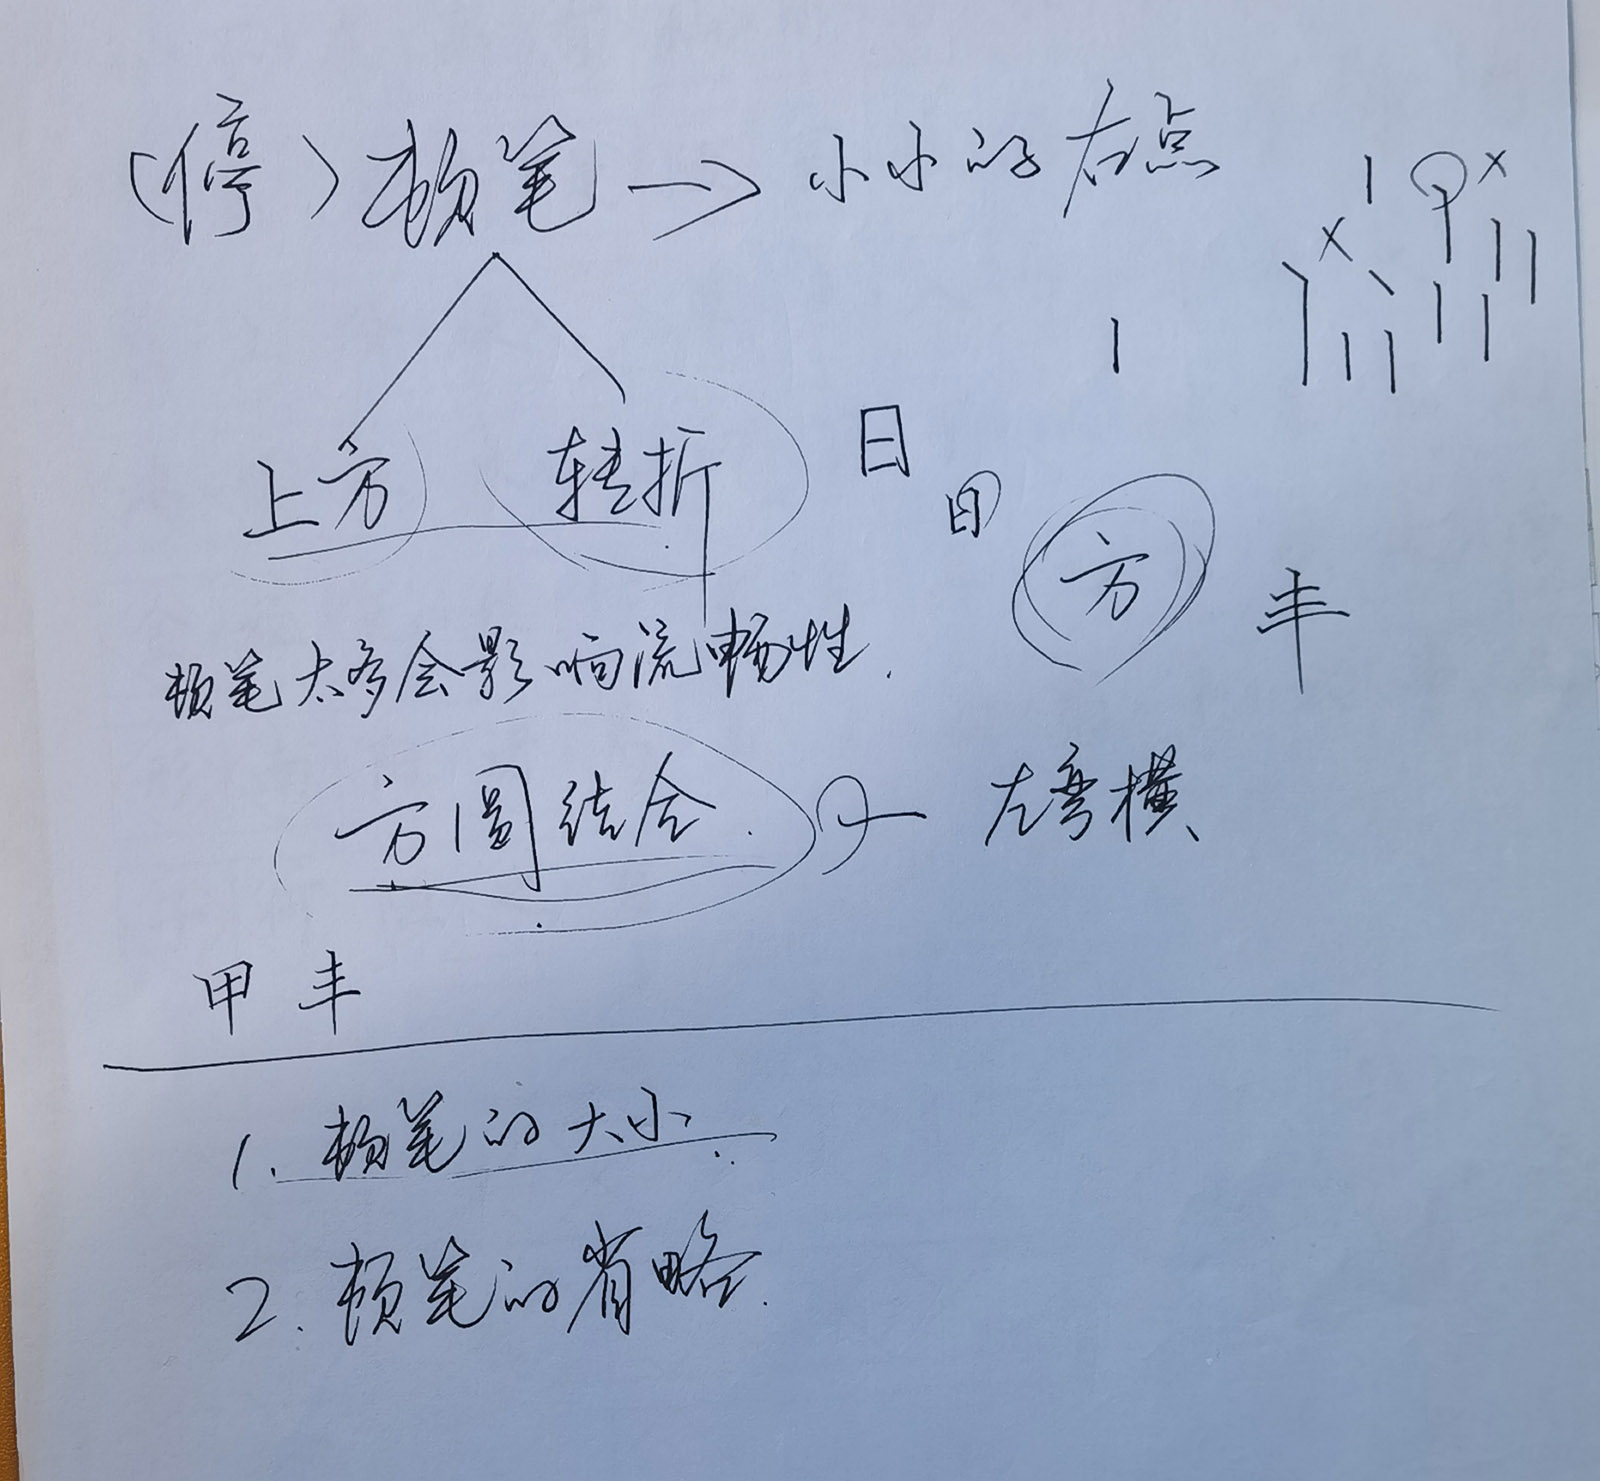 (停)顿笔→小小的右点
上方 转折
日
日
方
丰
顿笔太多会影响流畅性.
方圆结合.
左弯横
甲 丰
1. 顿笔的大小.
2. 顿笔的省略.